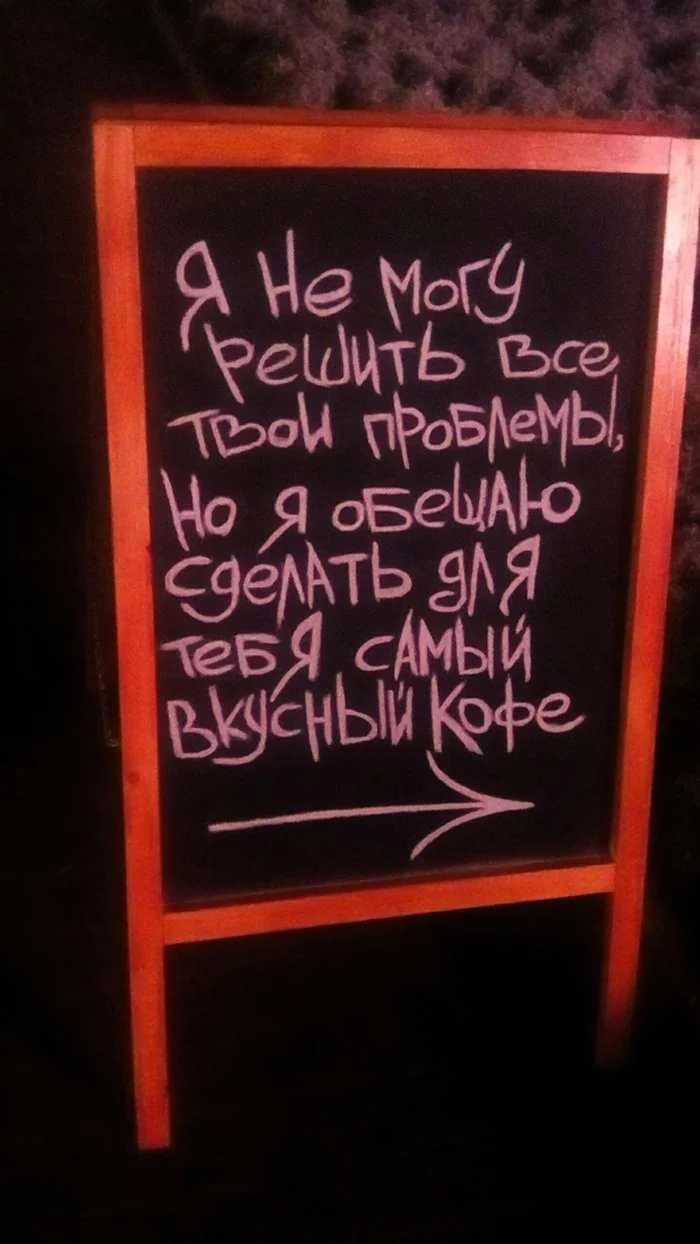 Я не могу
решить все
твои проблемы,
но я обещаю
сделать для
тебя самый
вкусный кофе